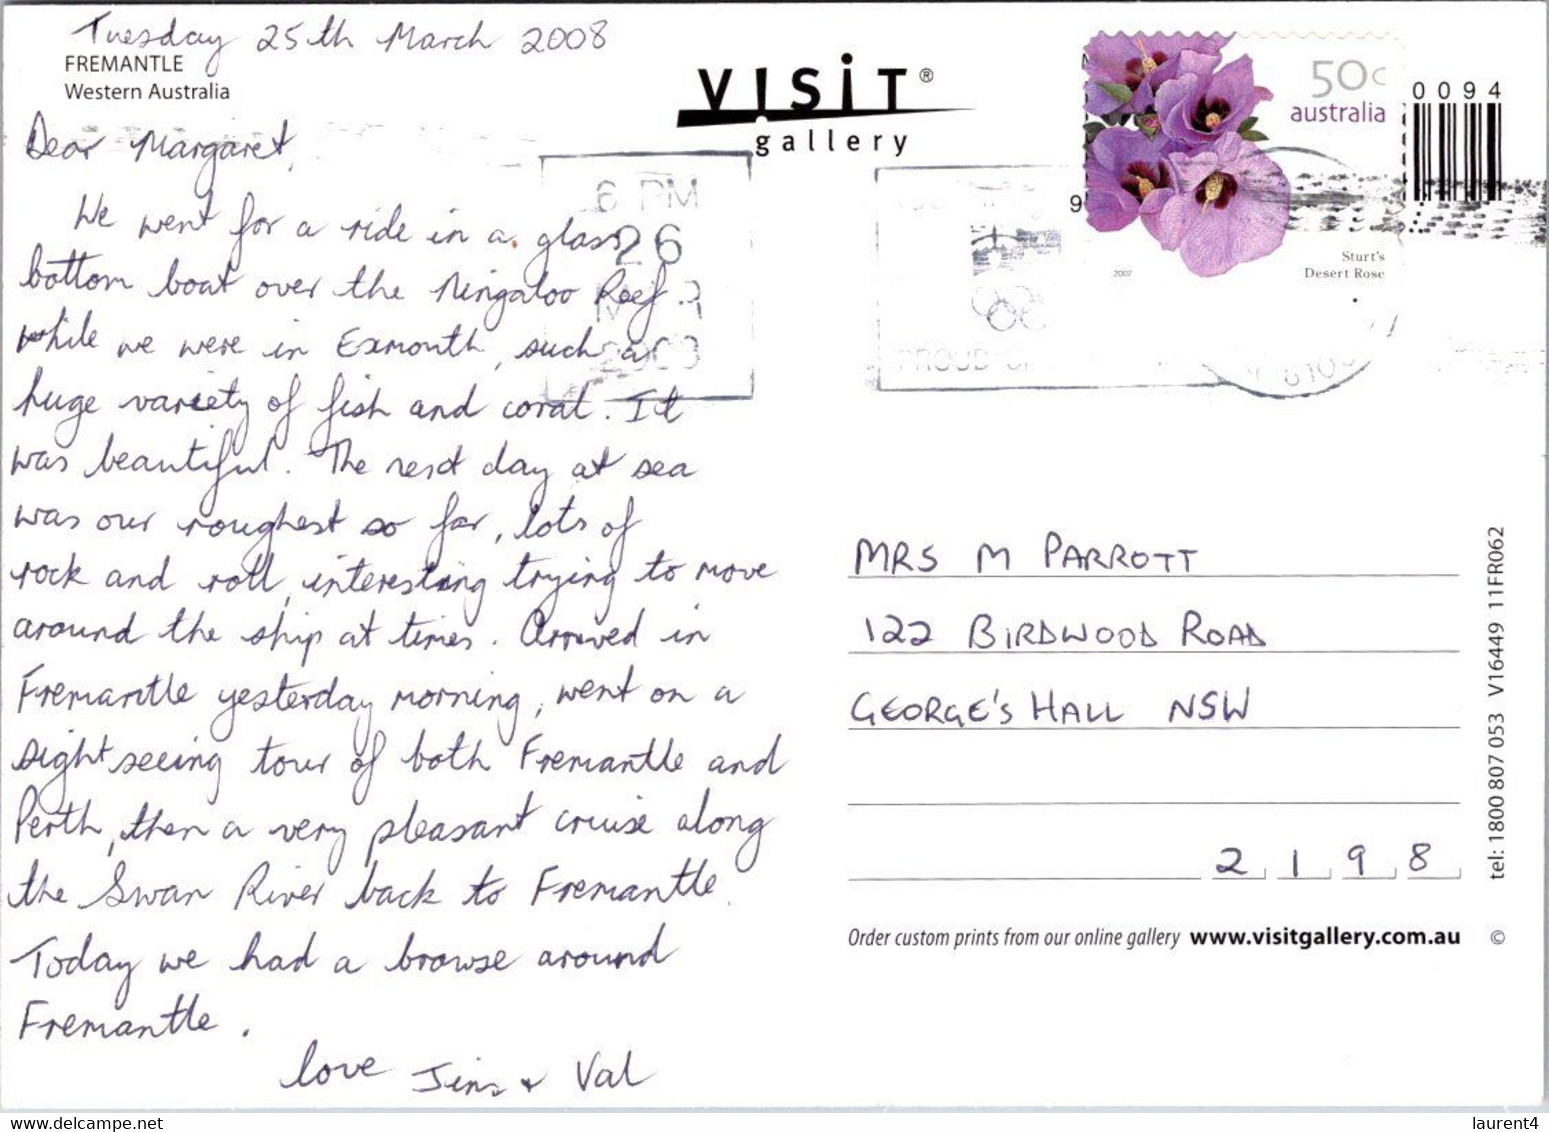 Tuesday 25th March 2008
FREMANTLE
Western Australia
VISIT®
gallery
50c
australia
0094
Sturt's
Desert Rose
2007
9
6 PM
26
Dear Margaret,
We went for a ride in a glass
bottom boat over the Ningaloo Reef
while we were in Exmouth, such a
huge variety of fish and coral. It
was beautiful. The next day at sea
was our roughest so far, lots of
rock and roll, interesting trying to move
around the ship at times. Arrived in
Fremantle yesterday morning, went on a
sight seeing tour of both Fremantle and
Perth, then a very pleasant cruise along
the Swan River back to Fremantle.
Today we had a browse around
Fremantle.
love Jim & Val
PROUD
MRS M PARROTT
122 BIRDWOOD ROAD
GEORGE'S HALL NSW
2198
Order custom prints from our online gallery www.visitgallery.com.au ©
tel: 1800 807 053 V16449 11FR062
laurent4